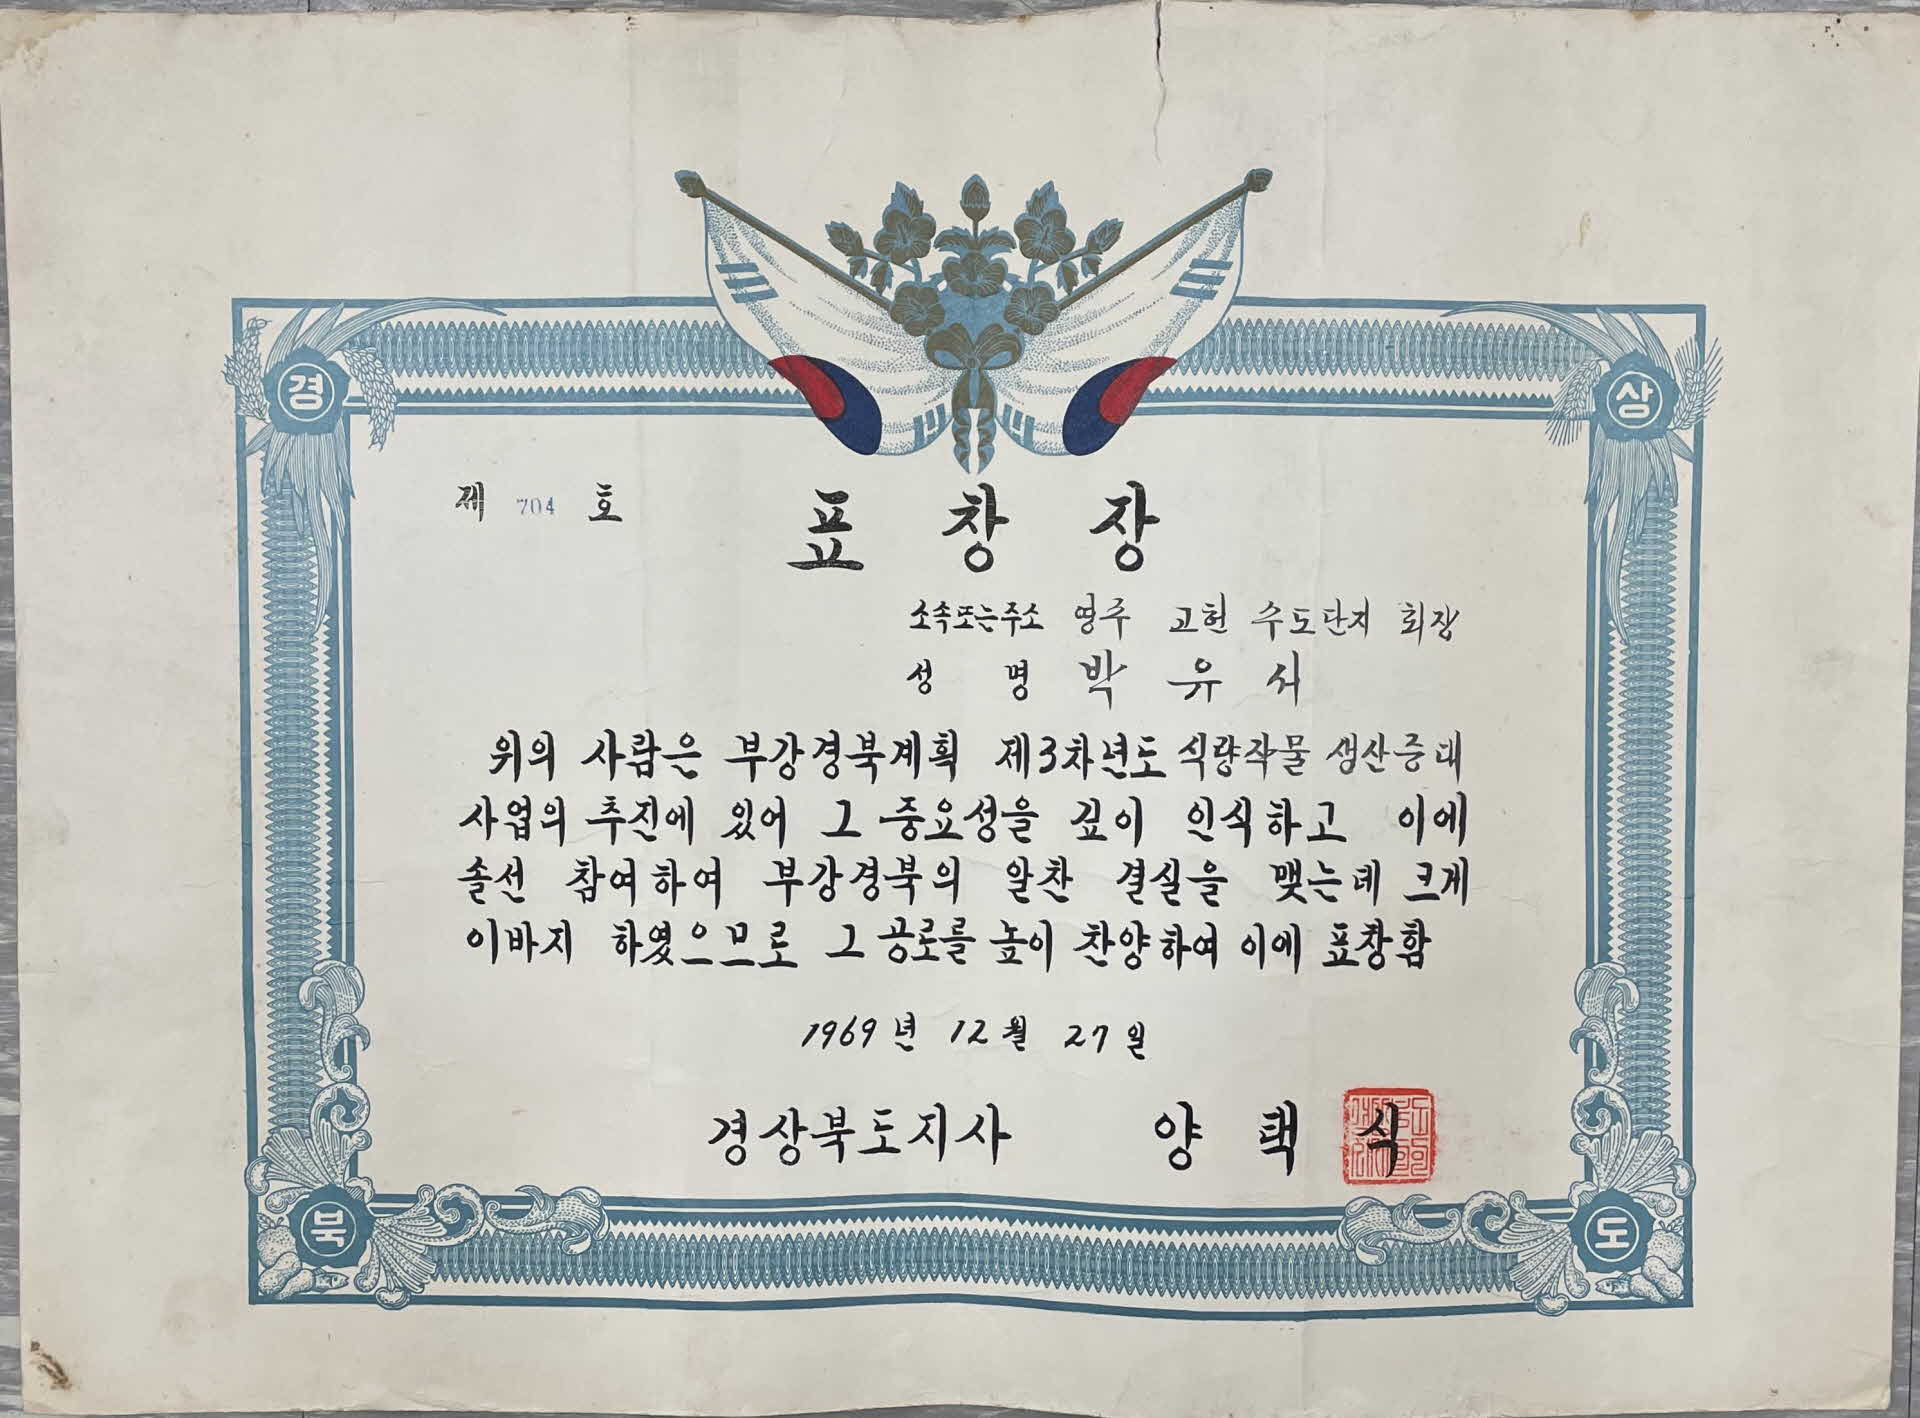 경 상
제 704 호
표 창 장
소속또는주소 영주 고헌 수도단지 회장
성 명 박 유 서
위의 사람은 부강경북계획 제3차년도 식량작물 생산증대
사업의 추진에 있어 그 중요성을 깊이 인식하고 이에
솔선 참여하여 부강경북의 알찬 결실을 맺는데 크게
이바지 하였으므로 그 공로를 높이 찬양하여 이에 표창함
1969년 12월 27일
경상북도지사 양 택 식
북 도